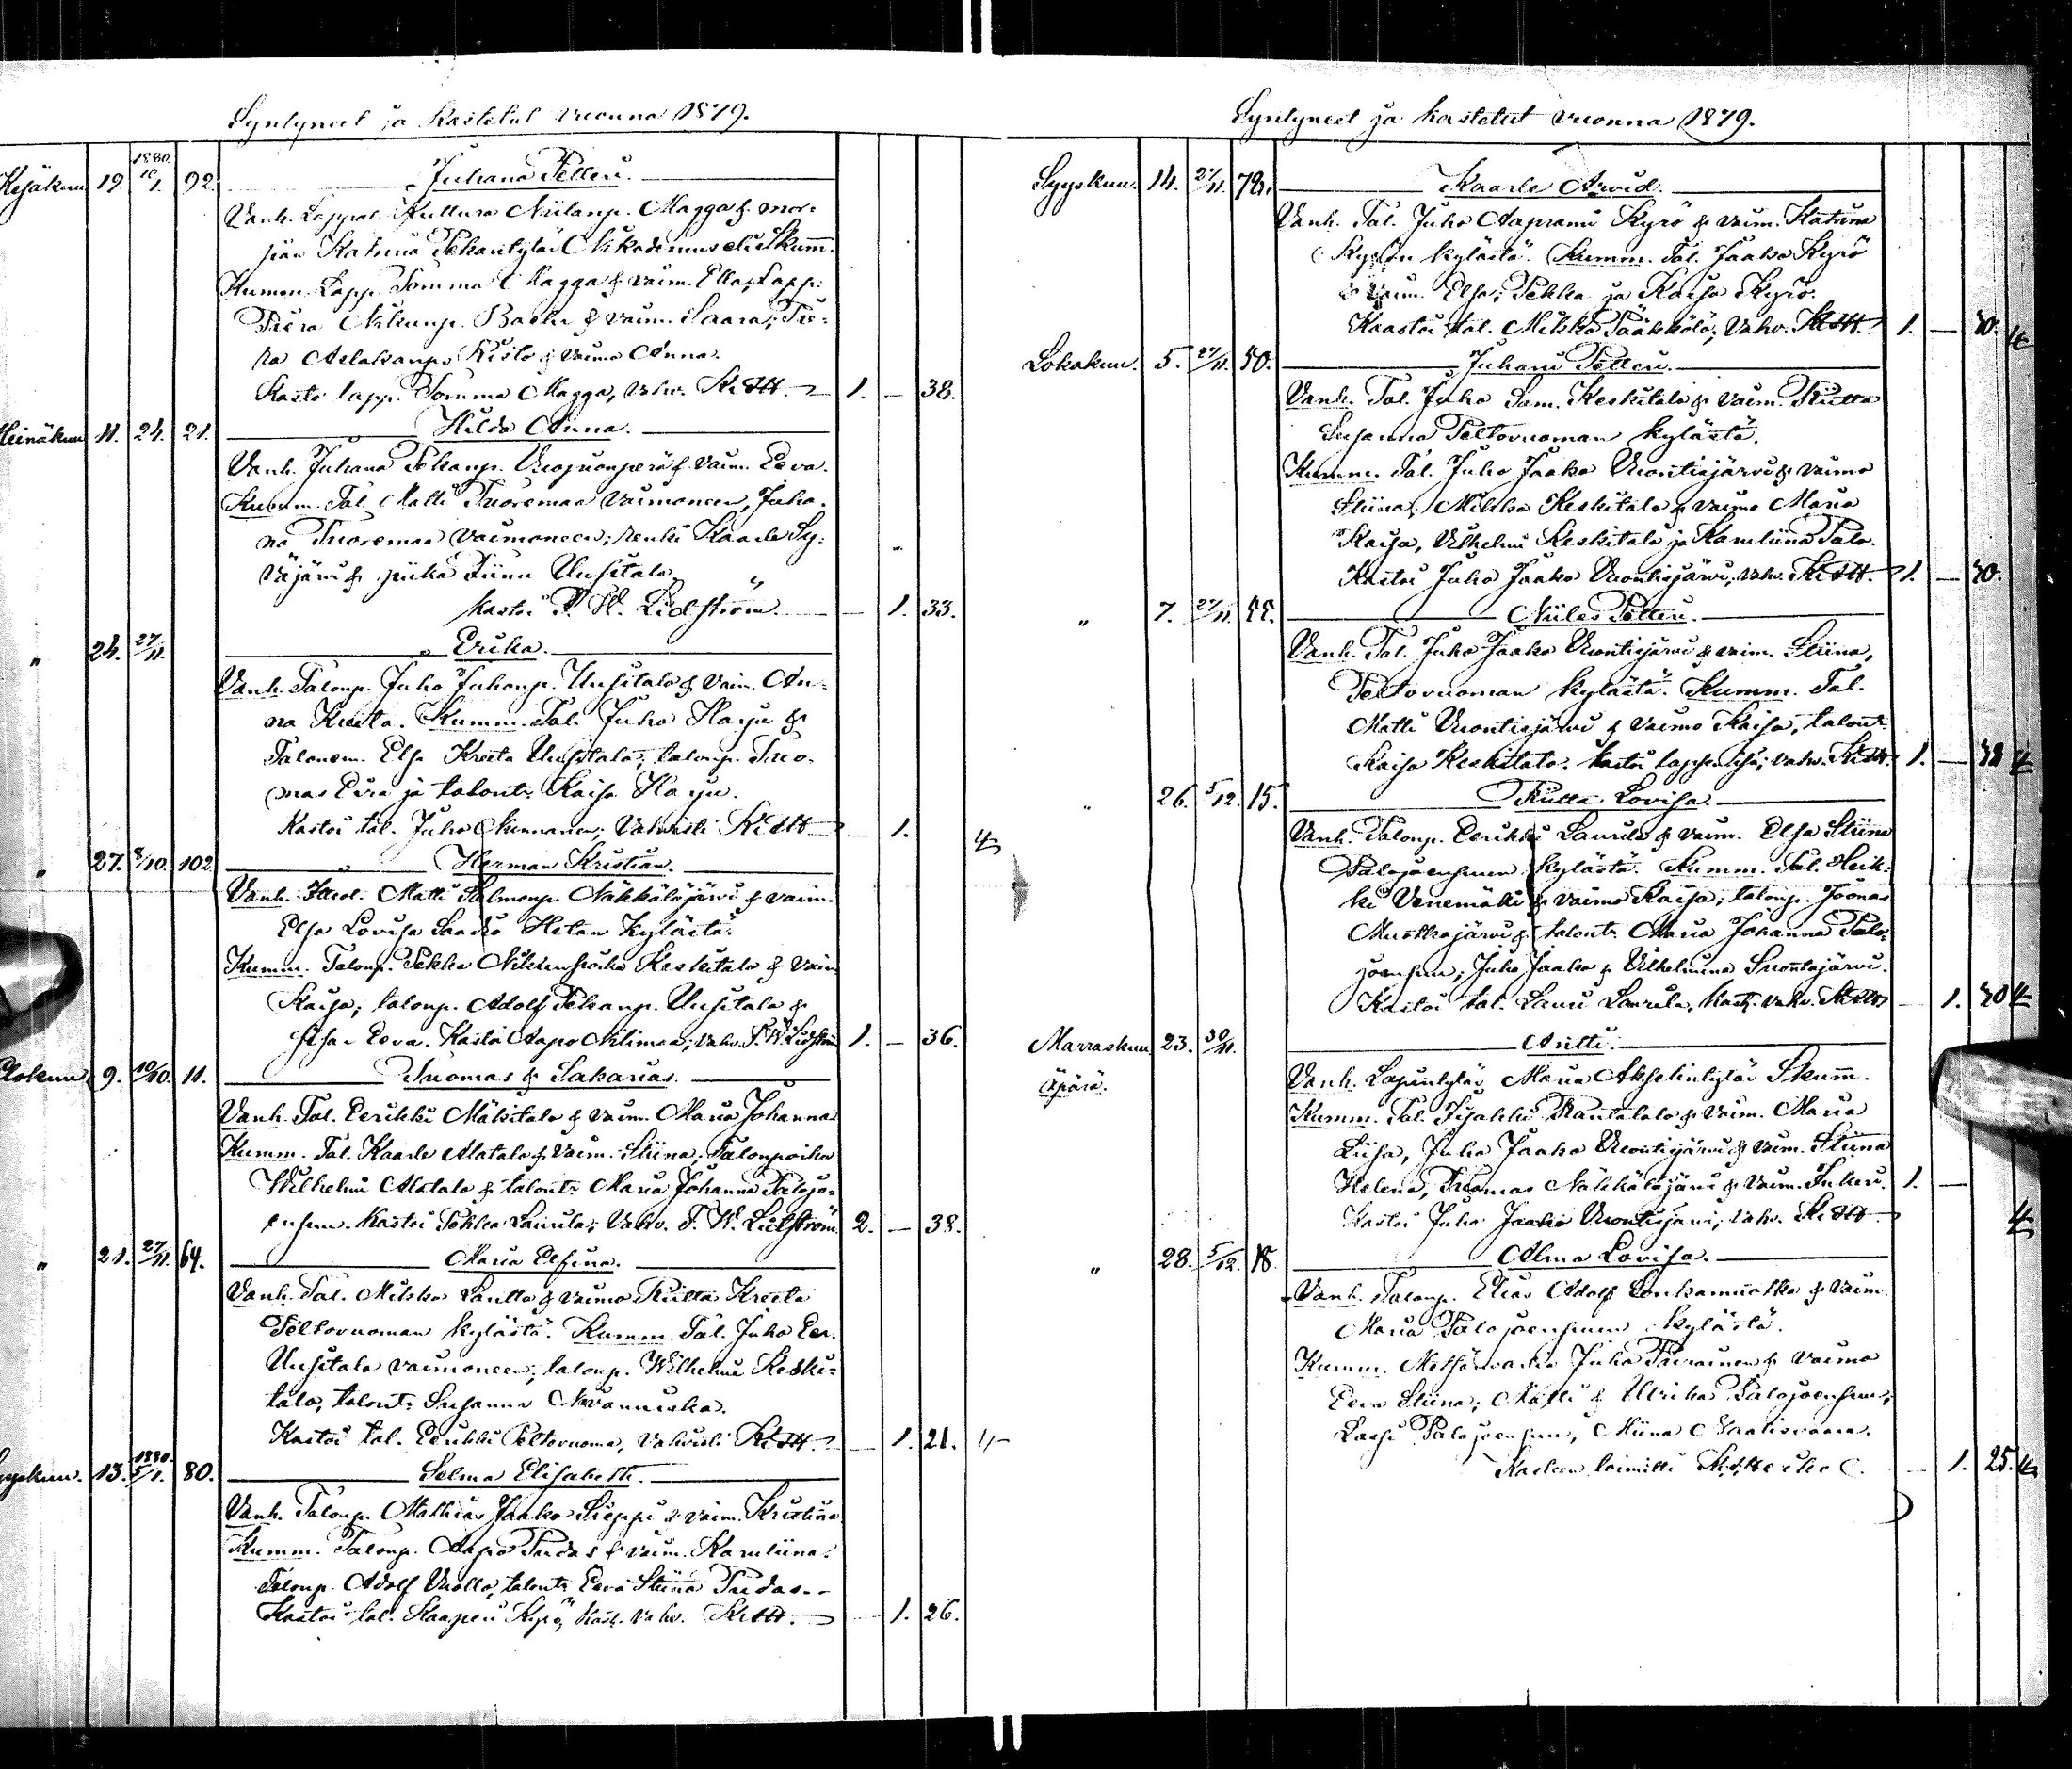 Syntyneet ja kastetut vuonna 1879.
Kesäkuu 19. 1880 10/1. 92. Juhana Petteri.
Vanh. Lappal. Kuttura Niilanp. Magga & mor-
sian Katriina Pekantytär Nikodemus eli Skumm.
Kumm. Lapp. Tomma Magga & vaim. Elka, Lapp.
Piera Niku
np. & vaim. Saara; Pie-
ra Aslakanp. Kisto & vaimo Anna.
Kasto lapp. Tomma Magga, vahv. 1. — 38.
Heinäkuu 11. 24. 21. Hilda Anna.
Vanh. Juhana Pekanp. Vuojuonperä & vaim. Eeva.
Kumm. Tal. Matti Tuoremaa vaimoneen, Juha-
na Tuoremaa vaimoneen; renki Kaarle Sy-
väjärvi & piika Tiinu Uusitalo,
kastoi P. W. Lidström. — 1. 33.
" 24. 27/11. Erika.
Vanh. Talonp. Juho Juhonp. Uusitalo & Vaim. An-
na Kreeta. Kumm. Tal. Juho Harju &
Talonem. Elsa Kreeta Uusitalo; talonp. Tuo-
mas Eira ja talont. Kaisa Harju.
Kastoi tal. Juho Keinänen; Vahvisti — 1. 4
" 27. 8/10. 102. Herman Kristian.
Vanh. Matti Salmonp. Näkkäläjärvi & vaim.
Elsa Lovisa Saadio Hetan Kylästä.
Kumm. Talonp. Pekka Keskitalo & Vaim
Kaisa; talonp. Adolf Pekanp. Uusitalo &
Eeva. Kastoi Aapo Niilimaa; vahv. P. W. Lidström 1. — 36.
Elokuu 9. 10/10. 11. Tuomas & Sakarias.
Vanh. Tal. Eerikki Mäkitalo & vaim. Maria Johanna
Kumm. Tal. Kaarle Alatalo & Vaim. Stiina; Talonpoika
Wilhelmi Alatalo & talont. Maria Johanna Palojo-
ensuu. Kastoi Pekka Laurila; Vahv. P. W. Lidström 2. — 38.
" 21. 27/11. 64. Maria Elfina.
Vanh. Tal. Mikko Lautto & vaimo Riitta Kreeta
Peltovuoman kylästä. Kumm. Tal. Juho Eer.
Uusitalo vaimoneen; talonp. Wilhelmi Keski-
talo, talont. Susanna Nivannuiska.
Kastoi tal. Eerikki Peltovuoma, Vahvisti — 1. 21. 4
Syyskuu. 13. 1880. 5/1. 80. Selma Elisabeth.
Vanh. Talonp. Mathias Jaako Sieppi & vaim. Kristiina
Kumm. Talonp. Aapo Pudas & vaim. Karuliina;
Talonp. Adolf Vuollo, talont. Eeva Stiina Pudas.
Kastoi tal. Kaaperi Kyrö, kast. vahv. — 1. 26.
Syntyneet ja kastetut vuonna 1879.
Syyskuu. 14. 27/11. 78. Kaarle Arvid.
Vanh. Tal. Juho Aaprami Kyrö & vaim. Katriina
Kyrön kylästä. Kumm. Tal. Jaako Kyrö
& vaim. Elsa; Pekka ja Kaisa Kyrö.
Kaastoi tal. Mikko Pääkkölä; Vahv. 1. — 30. 4
Lokakuu. 5. 27/11. 50. Juhani Petteri.
Vanh. Tal. Juho Sam. Keskitalo & vaim. Riitta
Susanna Peltovuoman kylästä.
Kumm. Tal. Juho Jaako Vuontisjärvi & vaimo
Stiina; Mikko Keskitalo & vaimo Maria
Kaisa, Vilhelmi Keskitalo ja Karuliina Palo.
Kastoi Juho Jaako Vuontisjärvi, vahv. 1. — 30.
" 7. 27/11. Niiles Petteri.
Vanh. Tal. Juho Jaako Vuontisjärvi & vaim. Stiina,
Peltovuoman kylästä. Kumm. Tal.
Matti Vuontisjärvi & vaimo Kaisa, talont.
Kaisa Keskitalo. kastoi lapsen isä; vahv. 1. — 38 4
" 26. 5/12. 15. Riitta Lovisa.
Vanh. Talonp. Eerikki Laurila & vaim. Elsa Stiina
Palojoensuun kylästä. Kumm. Tal. Heik-
ki Venemäki & vaimo Kaisa; talonp. Joonas
Muotkajärvi & talont. Maria Johanna Palo-
joensuu; Juho Jaako & Vilhelmina Suontajärvi.
Kastoi tal. Lauri Laurila, kast. vahv. — 1. 30 4
Marraskuu 23. 30/11. Antti.
Äpärä.
Vanh. Lapintytär Maria Akselintytär Skumm.
Kumm. Tal. Iisakki Rautalalo & vaim. Maria
Liisa, Juho Jaako Vuontisjärvi & vaim. Stiina
Helena, Tuomas Näkkäläjärvi & vaim. Inkeri. 1. —
Kastoi Juho Jaako Vuontisjärvi; vahv. 4
" 28. 5/12. 18. Alma Lovisa.
Vanh. Talonp. Elias Adolf Lonkamuotka & vaim.
Maria Palojoensuun kylästä.
Kumm. Metsänvartia Juho Piirainen & vaimo
Eeva Stiina; Matti & Ulrika Palojoensuu;
Lassi Palojoensuu, Miina Vaattovaara.
Kasteen toimitti — 1. 25. 4